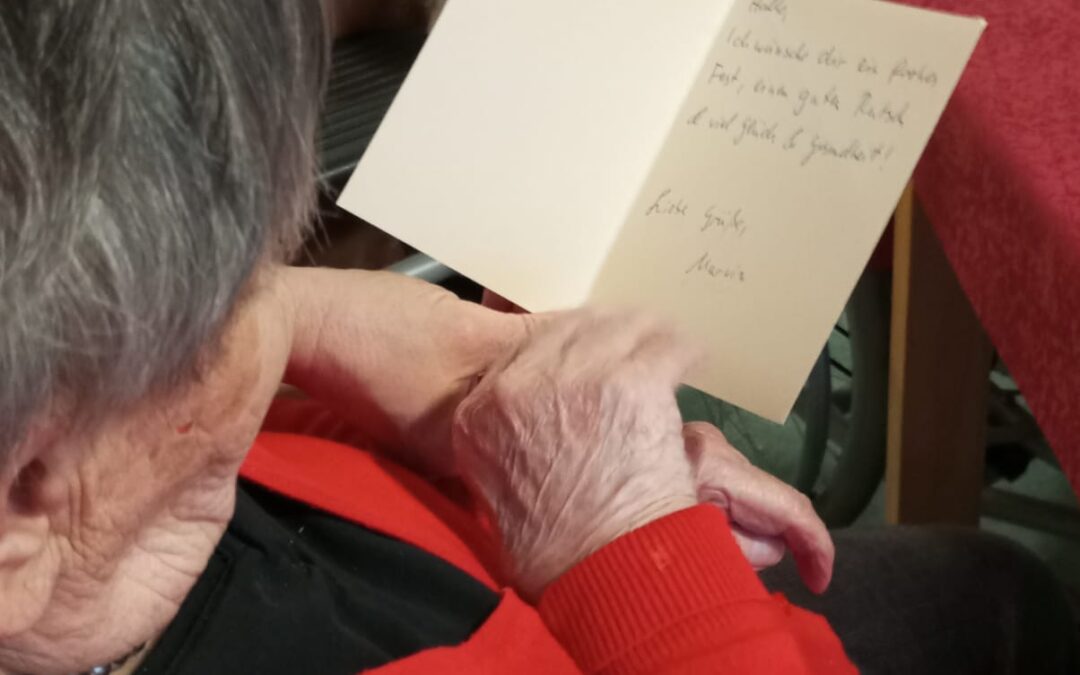 Hallo,
Ich wünsche dir ein frohes
Fest, einen guten Rutsch
& viel Glück & Gesundheit!
Liebe Grüße,
Marvin